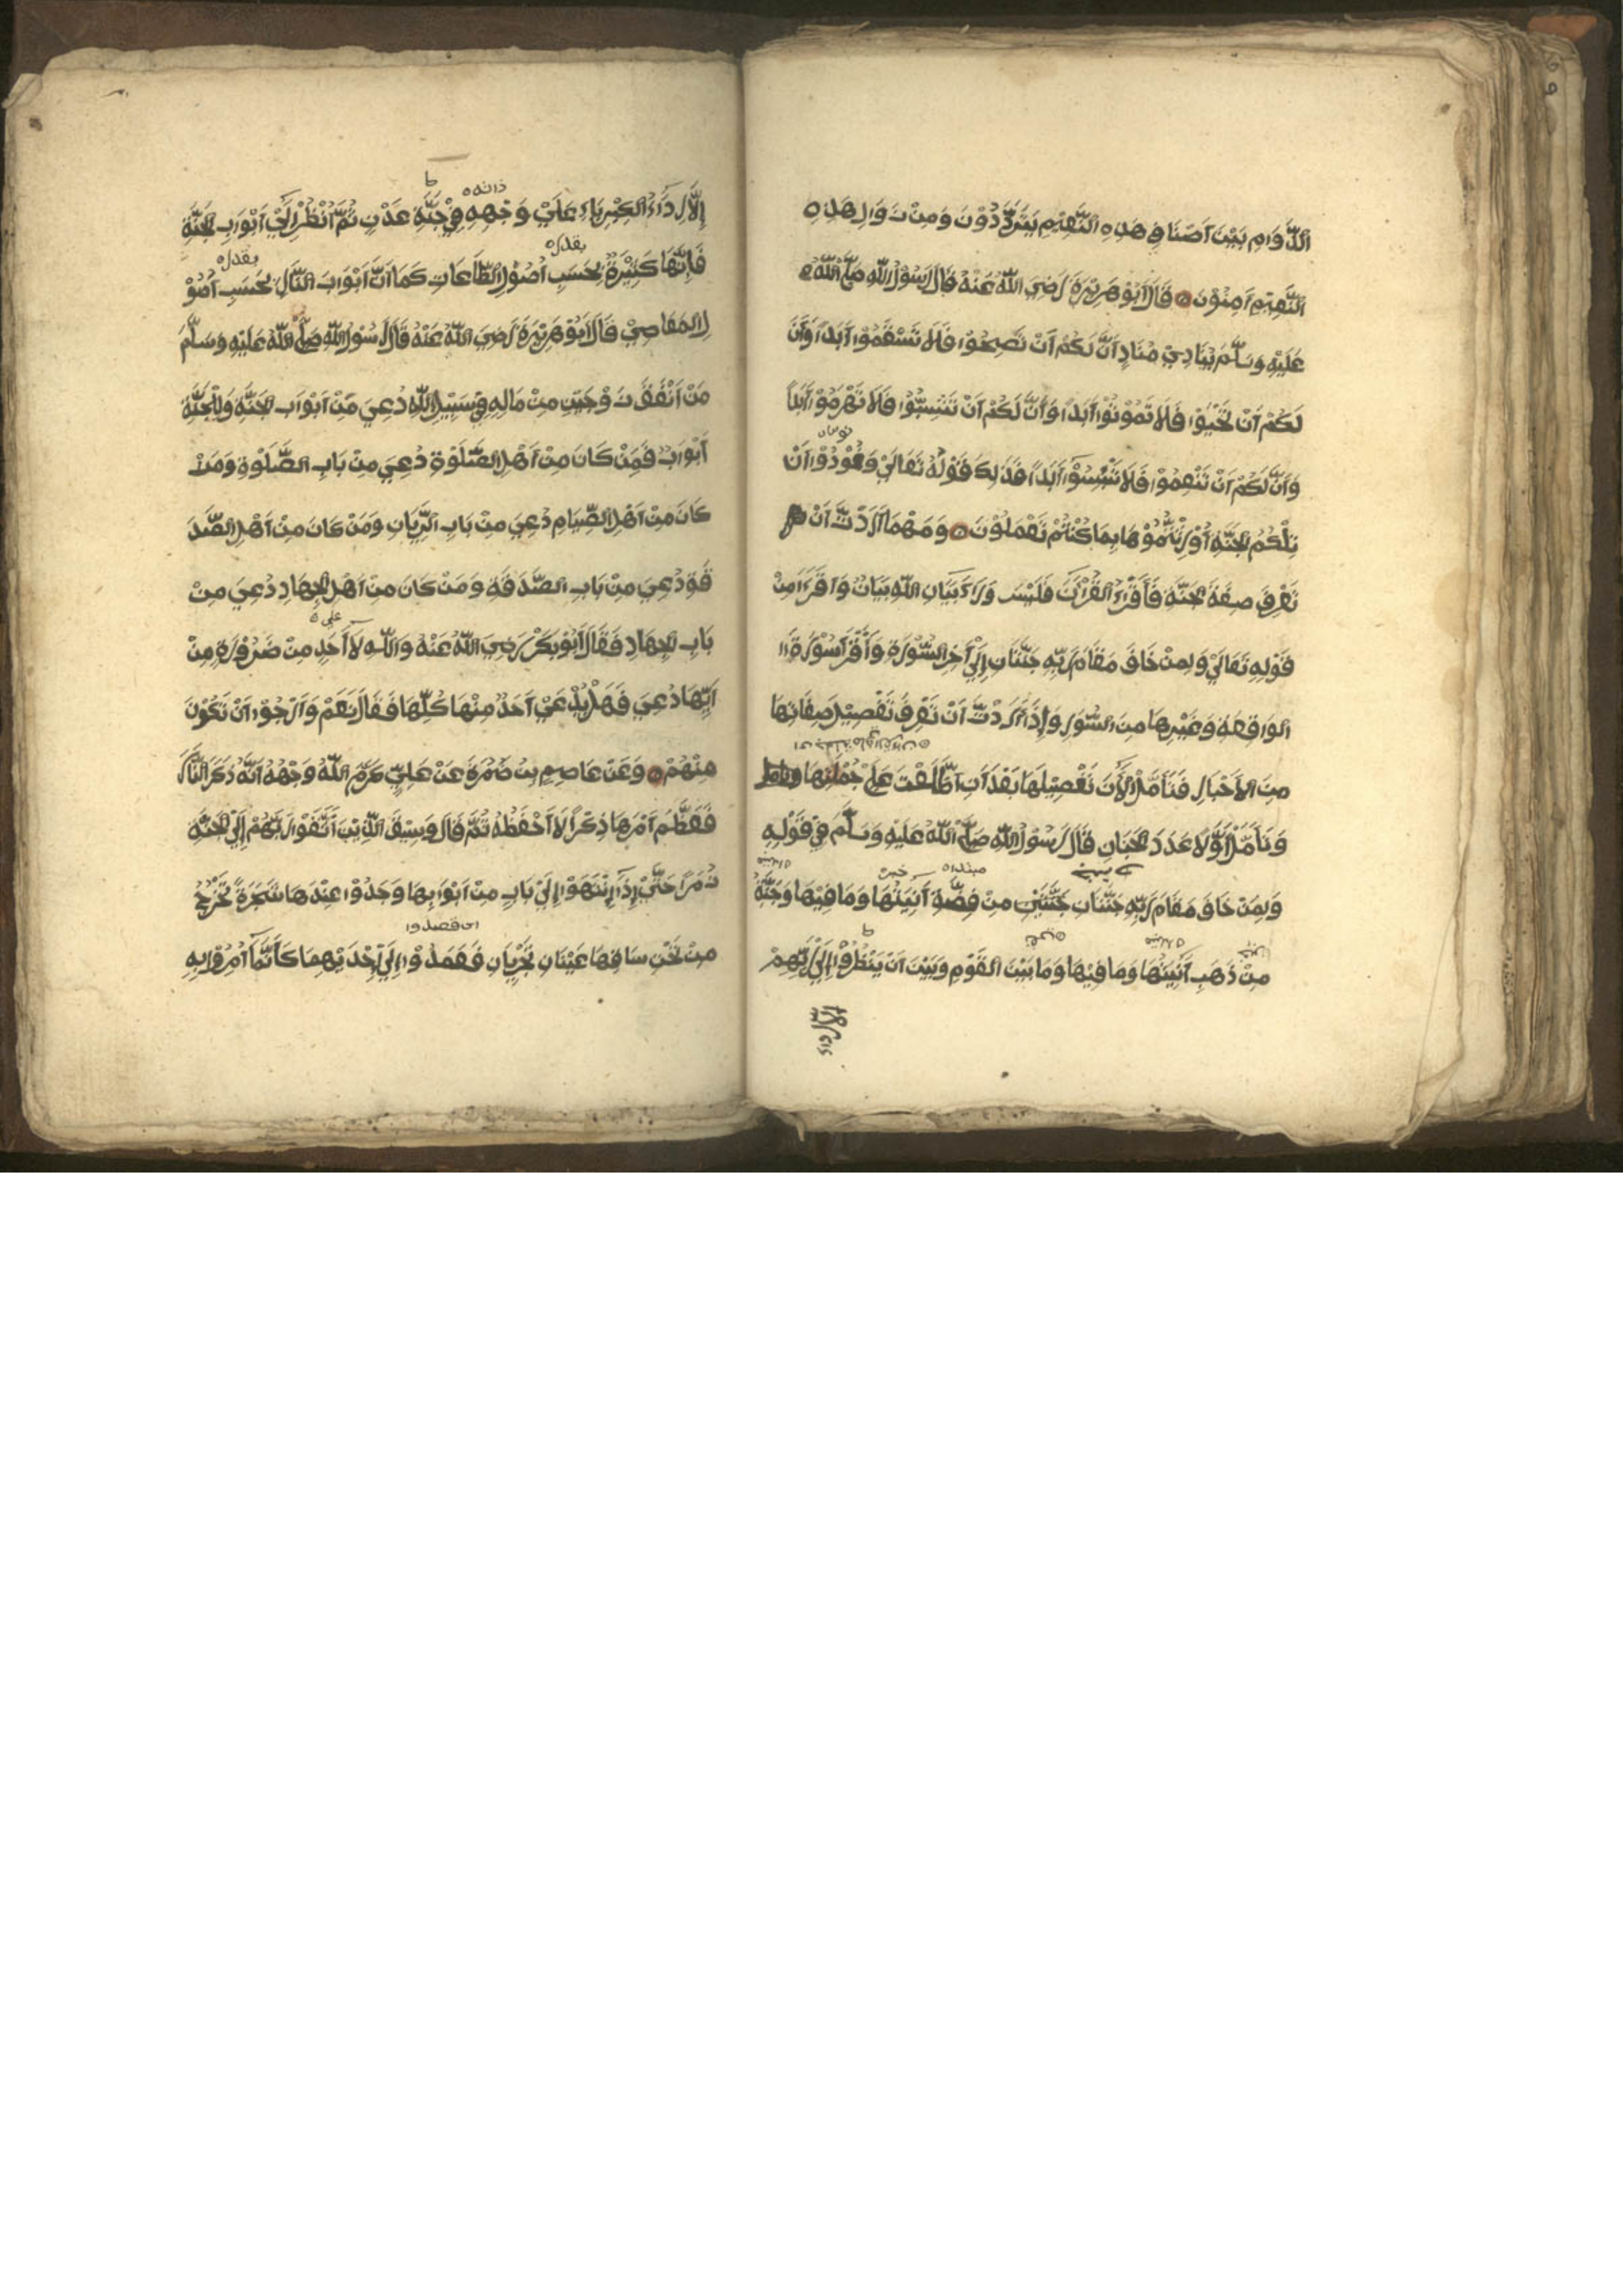 الدَّوَامِ بَيْنَ اَصْنَافِ هَذِهِ النَّعِيْمِ يَتَرَدَّدُوْنَ وَمِنْ زَوَالِ هَذِهِ
النَّعِيْمِ اٰمِنُوْنَ قَالَ اَبُوْ هُرَيْرَةَ رَضِيَ اللّٰهُ عَنْهُ قَالَ رَسُوْلُ اللّٰهِ صَلَّى اللّٰهُ
عَلَيْهِ وَسَلَّمَ يُنَادِيْ مُنَادٍ اَنَّ لَكُمْ اَنْ تَصِحُّوْا فَلَا تَسْقَمُوْا اَبَدًا وَاَنَّ
لَكُمْ اَنْ تَحْيَوْا فَلَا تَمُوْتُوْا اَبَدًا وَاَنَّ لَكُمْ اَنْ تَشِبُّوْا فَلَا تَهْرَمُوْا اَبَدًا
وَاَنَّ لَكُمْ اَنْ تَنْعِمُوْا فَلَا تَبْئَسُوْا اَبَدًا فَذٰلِكَ قَوْلُهُ تَعَالٰى وَنُوْدُوْا اَنْ
تِلْكُمُ الْجَنَّةُ اُوْرِثْتُمُوْهَا بِمَا كُنْتُمْ تَعْمَلُوْنَ وَمَهْمَا اَرَدْتَ اَنْ
تَعْرِفَ صِفَةَ الْجَنَّةِ فَاَقْرَءِ الْقُرْاٰنَ فَلَيْسَ وَرَاءَ بَيَانِ اللّٰهِ بَيَانٌ وَاقْرَءْ مِنْ
قَوْلِهِ تَعَالٰى وَلِمَنْ خَافَ مَقَامَ رَبِّهِ جَنَّتَانِ اِلٰى اٰخِرِ السُّوْرَةِ وَاقْرَأْ سُوْرَةَ
الوَاقِعَةِ وَغَيْرِهَا مِنَ السُّوَرِ وَاِذَا اَرَدْتَ اَنْ تَعْرِفَ تَفْصِيْلَ صِفَاتِهَا
مِنَ الْاَخْبَارِ فَتَاَمَّلِ الْاٰنَ تَفْصِيْلَهَا بَعْدَ اَنِ اطَّلَعْتَ عَلٰى جُمْلَتِهَا
وَتَاَمَّلْ اَوَّلًا عَدَدَ الْجِنَانِ قَالَ رَسُوْلُ اللّٰهِ صَلَّى اللّٰهُ عَلَيْهِ وَسَلَّمَ فِيْ قَوْلِهِ
مبتداه خبره
وَلِمَنْ خَافَ مَقَامَ رَبِّهِ جَنَّتَانِ جَنَّتَيْنِ مِنْ فِضَّةٍ اٰنِيَتُهَا وَمَا فِيْهَا وَجَنَّةٌ
مِنْ ذَهَبٍ اٰنِيَتُهَا وَمَا فِيْهَا وَمَا بَيْنَ الْقَوْمِ وَبَيْنَ اَنْ يَنْظُرُوْا اِلٰى رَبِّهِمْ
ذاته
اِلَّا رِدَآءُ الْكِبْرِيَاءِ عَلٰى وَجْهِهِ فِيْ جَنَّةِ عَدْنٍ ثُمَّ انْظُرْ اِلٰى اَبْوَابِ الْجَنَّةِ
بقدر بقدر
فَاِنَّهَا كَثِيْرَةٌ بِحَسَبِ اُصُوْلِ الطَّاعَاتِ كَمَا اَنَّ اَبْوَابَ النَّارِ بِحَسَبِ اُصُوْ
لِ الْمَعَاصِيْ قَالَ اَبُوْ هُرَيْرَةَ رَضِيَ اللّٰهُ عَنْهُ قَالَ رَسُوْلُ اللّٰهِ صَلَّى اللّٰهُ عَلَيْهِ وَسَلَّمَ
مَنْ اَنْفَقَ زَوْجَيْنِ مِنْ مَالِهِ فِيْ سَبِيْلِ اللّٰهِ دُعِيَ مِنْ اَبْوَابِ الْجَنَّةِ وَلِلْجَنَّةِ
اَبْوَابٌ فَمَنْ كَانَ مِنْ اَهْلِ الصَّلٰوةِ دُعِيَ مِنْ بَابِ الصَّلٰوةِ وَمَنْ
كَانَ مِنْ اَهْلِ الصِّيَامِ دُعِيَ مِنْ بَابِ الرَّيَّانِ وَمَنْ كَانَ مِنْ اَهْلِ الصَّدَ
قَةِ دُعِيَ مِنْ بَابِ الصَّدَقَةِ وَمَنْ كَانَ مِنْ اَهْلِ الْجِهَادِ دُعِيَ مِنْ
على
بَابِ الْجِهَادِ فَقَالَ اَبُوْبَكْرٍ رَضِيَ اللّٰهُ عَنْهُ وَاللّٰهِ لَا اَحَدٍ مِنْ ضَرُوْرَةٍ مِنْ
اَيِّهَا دُعِيَ فَهَلْ يُدْعٰى اَحَدٌ مِنْهَا كُلِّهَا فَقَالَ نَعَمْ وَاَرْجُوْا اَنْ تَكُوْنَ
مِنْهُمْ وَعَنْ عَاصِمِ بْنِ ضَمُرَةَ عَنْ عَلِيٍّ كَرَّمَ اللّٰهُ وَجْهَهُ اَنَّهُ ذَكَرَ النَّارَ
فَعَظَّمَ اَمْرَهَا ذِكْرًا لَا اَحْفَظُهُ ثُمَّ قَالَ وَسِيْقَ الَّذِيْنَ اتَّقَوْا رَبَّهُمْ اِلَى الْجَنَّةِ
زُمَرًا حَتّٰى اِذَا انْتَهَوْا اِلٰى بَابٍ مِنْ اَبْوَابِهَا وَجَدُوْا عِنْدَهَا شَجَرَةً تَخْرُجُ
اى قصدوا
مِنْ تَحْتِ سَاقِهَا عَيْنَانِ تَجْرِيَانِ فَعَمَدُوْا اِلٰى اِحْدَيْهِمَا كَاَنَّمَا اُمِرُوْا بِهِ